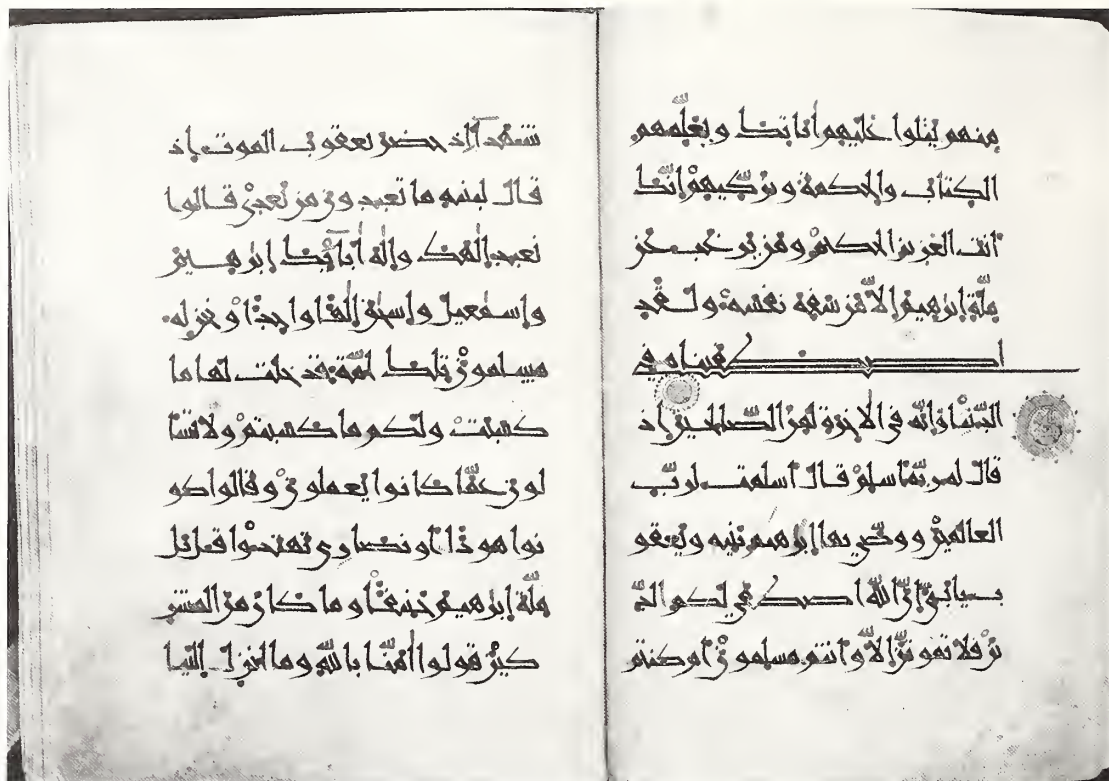 منهم يتلوا عليهم اياتك ويعلمهم
الكتاب والحكمة ويزكيهم انك
انت العزيز الحكيم ومن يرغب عن
ملة ابرهيم الا من سفه نفسه ولقد
اصطفيناه في
الدنيا وانه في الاخرة لمن الصالحين اذ
قال له ربه اسلم قال اسلمت لرب
العالمين ووصى بها ابرهيم بنيه ويعقو
ب يابني ان الله اصطفى لكم الد
ين فلا تموتن الا وانتم مسلمون ام كنتم
شهدآ اذ حضر يعقوب الموت اذ
قال لبنيه ما تعبدون من بعدي قالوا
نعبد الهك واله ابآئك ابرهيم
واسمعيل واسحق الها واحدا ونحن له
مسلمون تلك امة قد خلت لها ما
كسبت ولكم ما كسبتم ولا تسأ
لون عما كانوا يعملون وقالوا كو
نوا هودا او نصارى تهتدوا قل بل
ملة ابرهيم حنيفا وما كان من المشر
كين قولوا امنا بالله وما انزل الينا